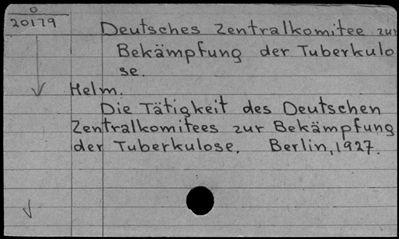 0
20179
Deutsches Zentralkomitee zur
Bekämpfung der Tuberkulo
se.
Helm.
Die Tätigkeit des Deutschen
Zentralkomitees zur Bekämpfung
der Tuberkulose. Berlin, 1927.